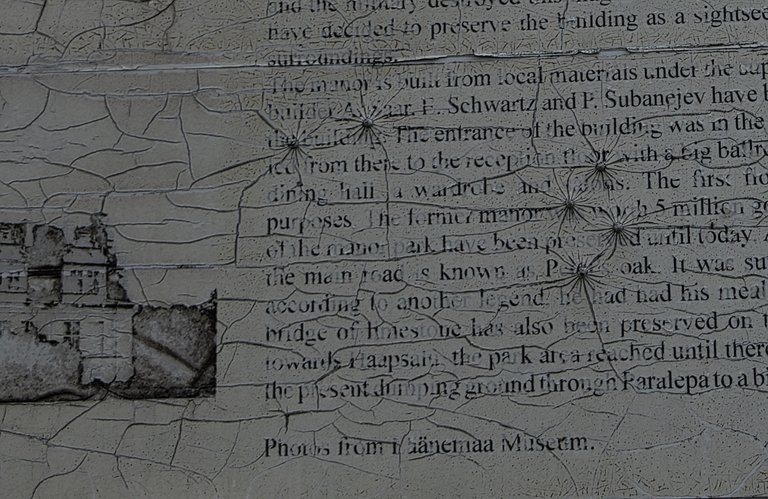 and the military destroyed this
have decided to preserve the building as a sightsee
surroundings.
The manor is built from local materials under the sup
builder A. E. Schwartz and P. Subanejev have b
the building. The entrance of the building was in the
led from there to the reception floor with a big ballro
dining hall a wardrobe and rooms. The first flo
purposes. The former manor 5 million go
of the manor park have been preserved until today. A
the main road is known as oak. It was su
according to another legend, he had had his meal
bridge of limestone has also been preserved on t
towards Haapsalu the park area reached until there
the present dumping ground through Paralepa to a bi
Photos from Läänemaa Museum.